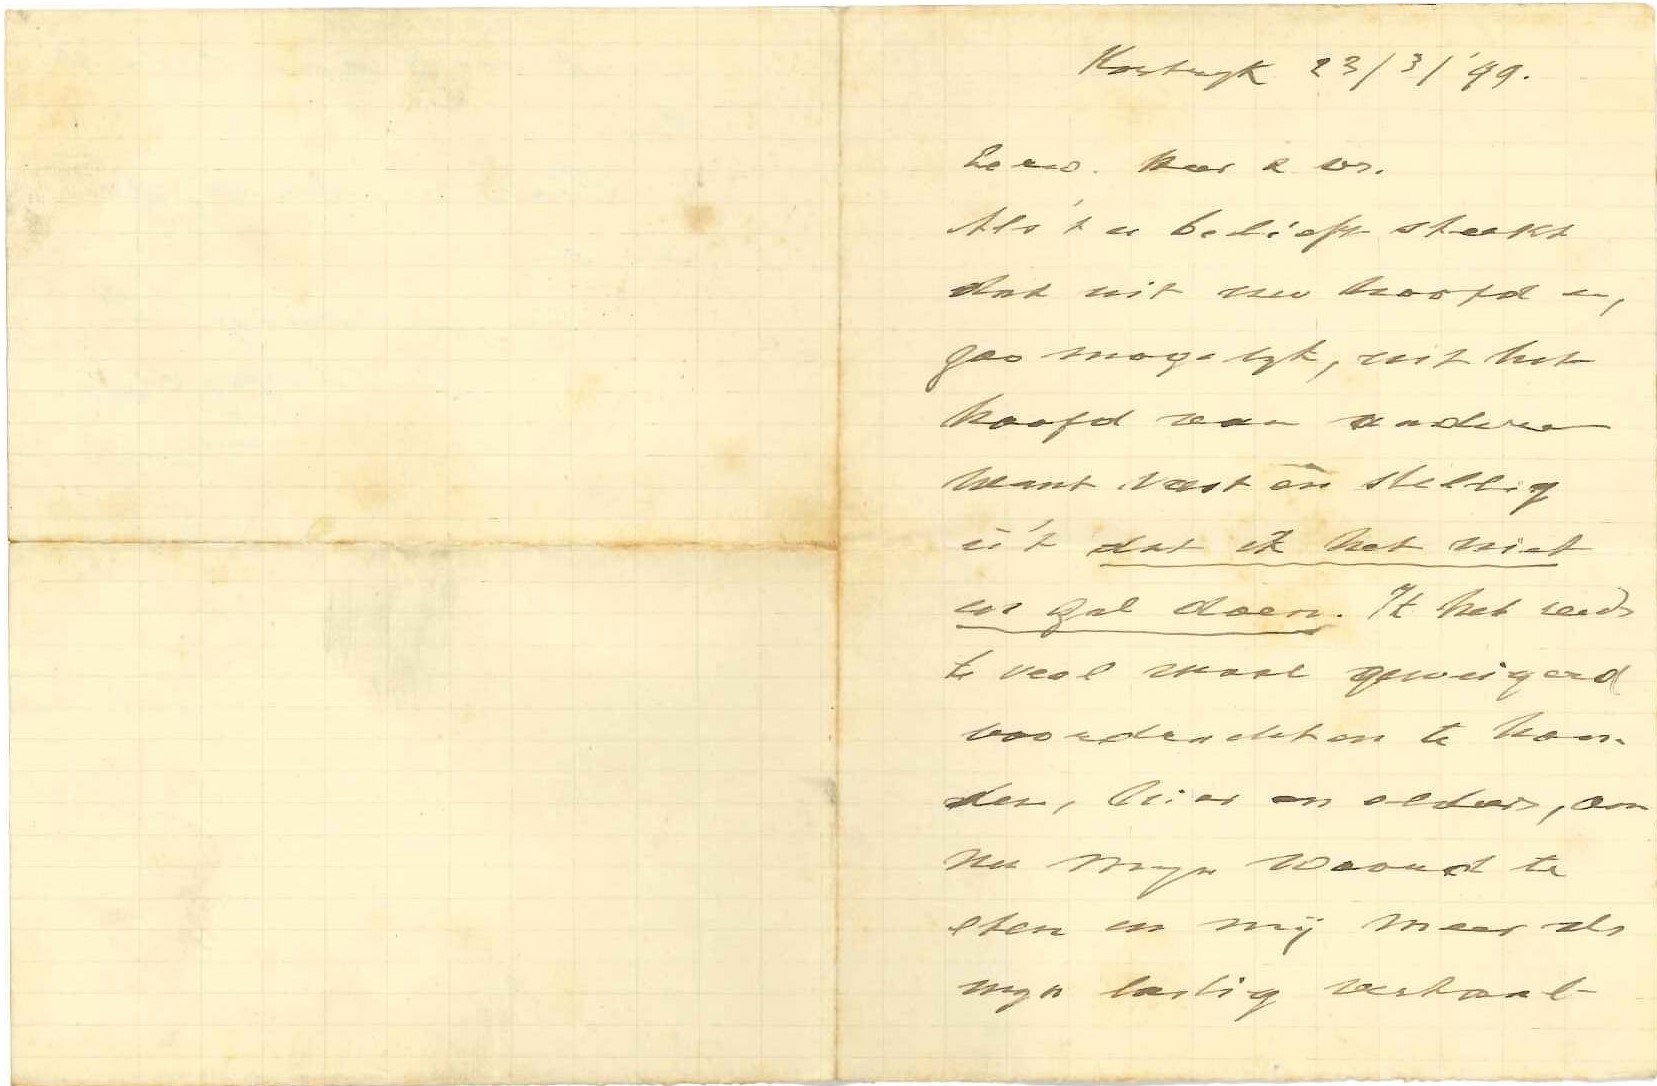 Kortryk 23/3/'99.
Eerw. Heer & vr.
Als 't u belieft steekt
dat uit uw hoofd en,
zoo mogelyk, uit het
hoofd van anderen
want vast en stellig
is 't dat ik het niet
en zal doen. Ik heb reeds
te veel maal geweigerd
voordrachten te hou-
den, hier en elders, om
nu myn woord te
eten en mij meer als
myn lastig